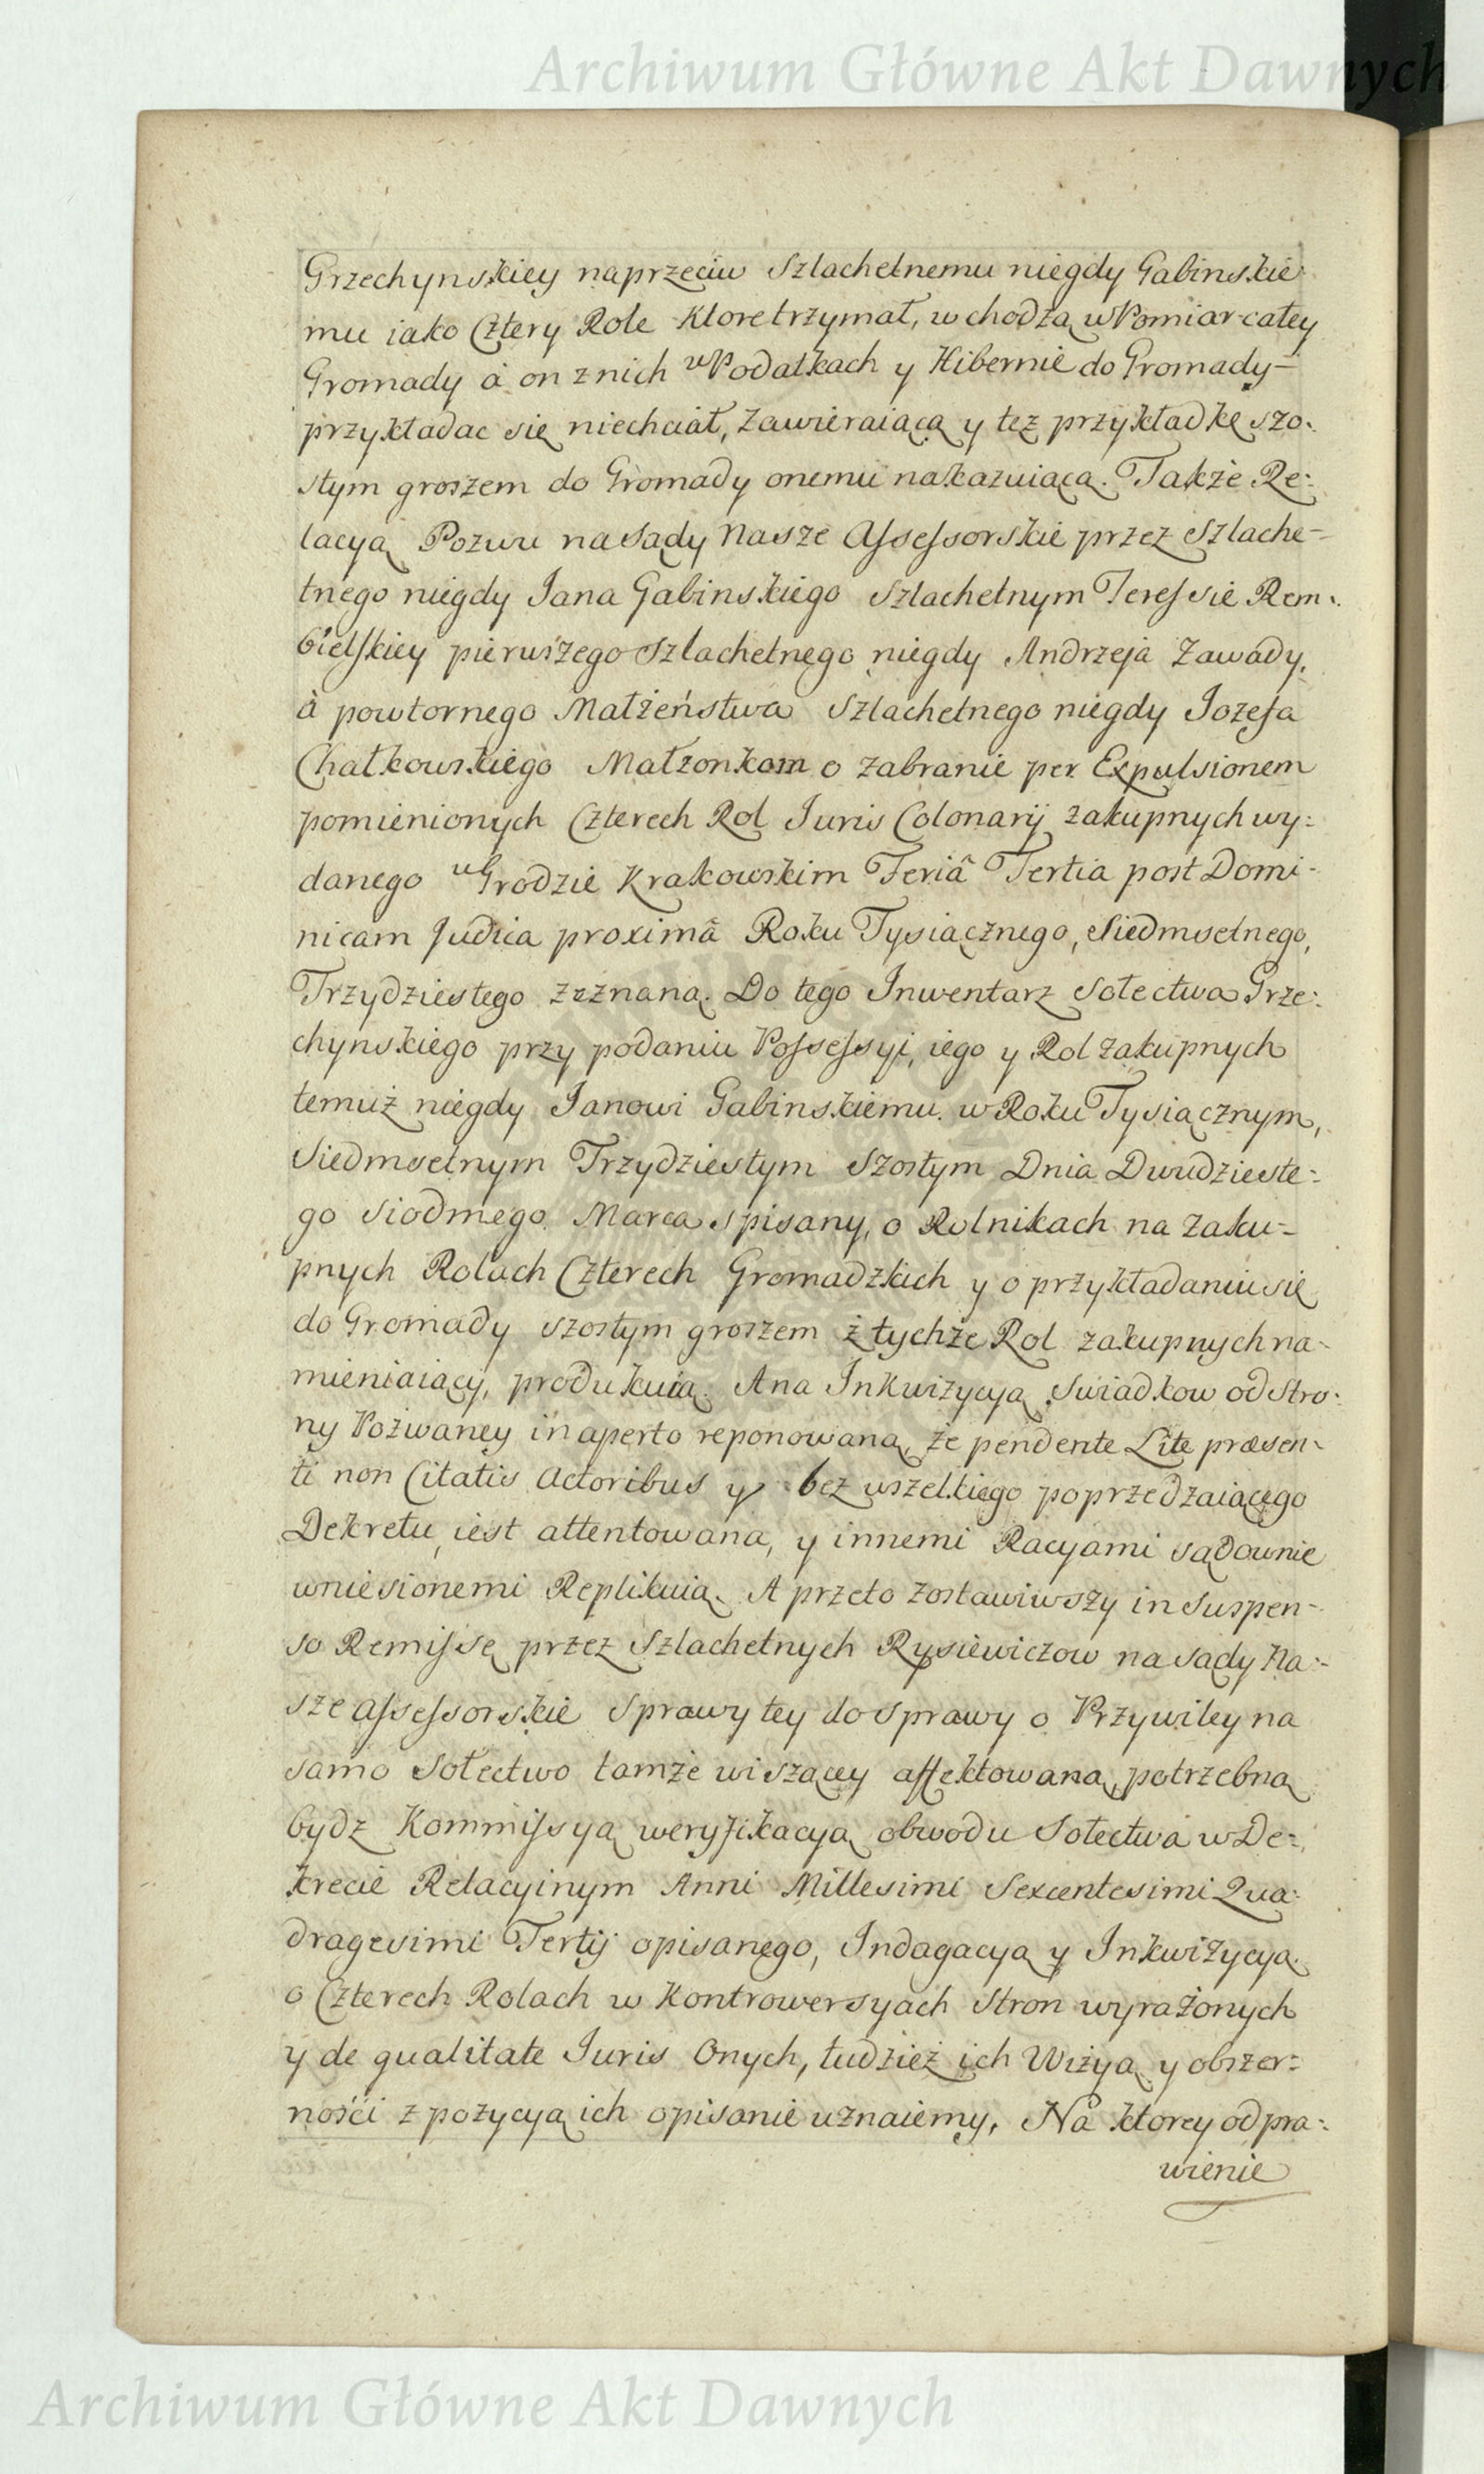 Archiwum Główne Akt Dawnych
Grzechynskiey naprzeciw Szlachetnemu niegdy Gabinskie
mu iako Cztery Role Ktore trzymał, wchodzą w Pomiar całey
Gromady à on z nich w Podatkach y Hibernie do Gromady –
przykładac się niechciał, zawieraiącą y tez przykładkę szo-
stym groszem do Gromady onemu nakazuiącą. Także Re:
lacyą Pozwu na Sądy Nasze Assessorskie przez Szlache-
tnego niegdy Jana Gabinskiego Szlachetnym Teressie Rem-
bielskiey pierwszego Szlachetnego niegdy Andrzeja Zawady,
à powtornego Małżeństwa Szlachetnego niegdy Jozefa
Chatkowskiego Małzonkom o zabranie per Expulsionem
pomienionych Czterech Rol Juris Colonarij zakupnych wy:
danego w Grodzie Krakowskim Feriâ Tertia post Domi-
nicam Judica proximâ Roku Tysiącznego, Siedmsetnego,
Trzydziestego zeznaną. Do tego Inwentarz Sołectwa Grze:
chynskiego przy podaniu Possessyi, iego y Rol zakupnych
temuż niegdy Janowi Gabinskiemu w Roku Tysiącznym,
Siedmsetnym Trzydziestym Szostym Dnia Dwudzieste:
go Siodmego Marca spisany, o Rolnikach na zaku-
pnych Rolach Czterech Gromadzkich y o przykładaniu się
do Gromady szostym groszem z tychże Rol zakupnych na-
mieniaiący, produkuią. Ana Inkwizycyą Swiadkow od Stro:
ny Pozwaney in aperto reponowaną, że pendente Lite præsen-
ti non Citatis Actoribus y bez wszelkiego poprzedzaiącego
Dekretu iest attentowana, y innemi Racyami sądownie
wniesionemi Replikuią. A przeto zostawiwszy in Suspen-
so Remissę przez Szlachetnych Rysiewiczow na sądy Na:-
sze Assessorskie Sprawy tey do sprawy o Przywiley na
samo Sołectwo tamże wiszącey affektowaną, potrzebną
bydz Kommissyą weryfikacyą obwodu Sołectwa w De:
krecie Relacyinym Anni Millesimi Sexcentesimi Qua-
dragesimi Tertij opisanego, Indagacyą y Inkwizycyą
o Czterech Rolach w Kontrowersyach Stron wyrażonych
y de qualitate Juris Onych, tudzież ich Wizyą y obszer:
ności z pozycyą ich opisanie uznaiemy, Na ktorey odpra:
wienie
Archiwum Główne Akt Dawnych